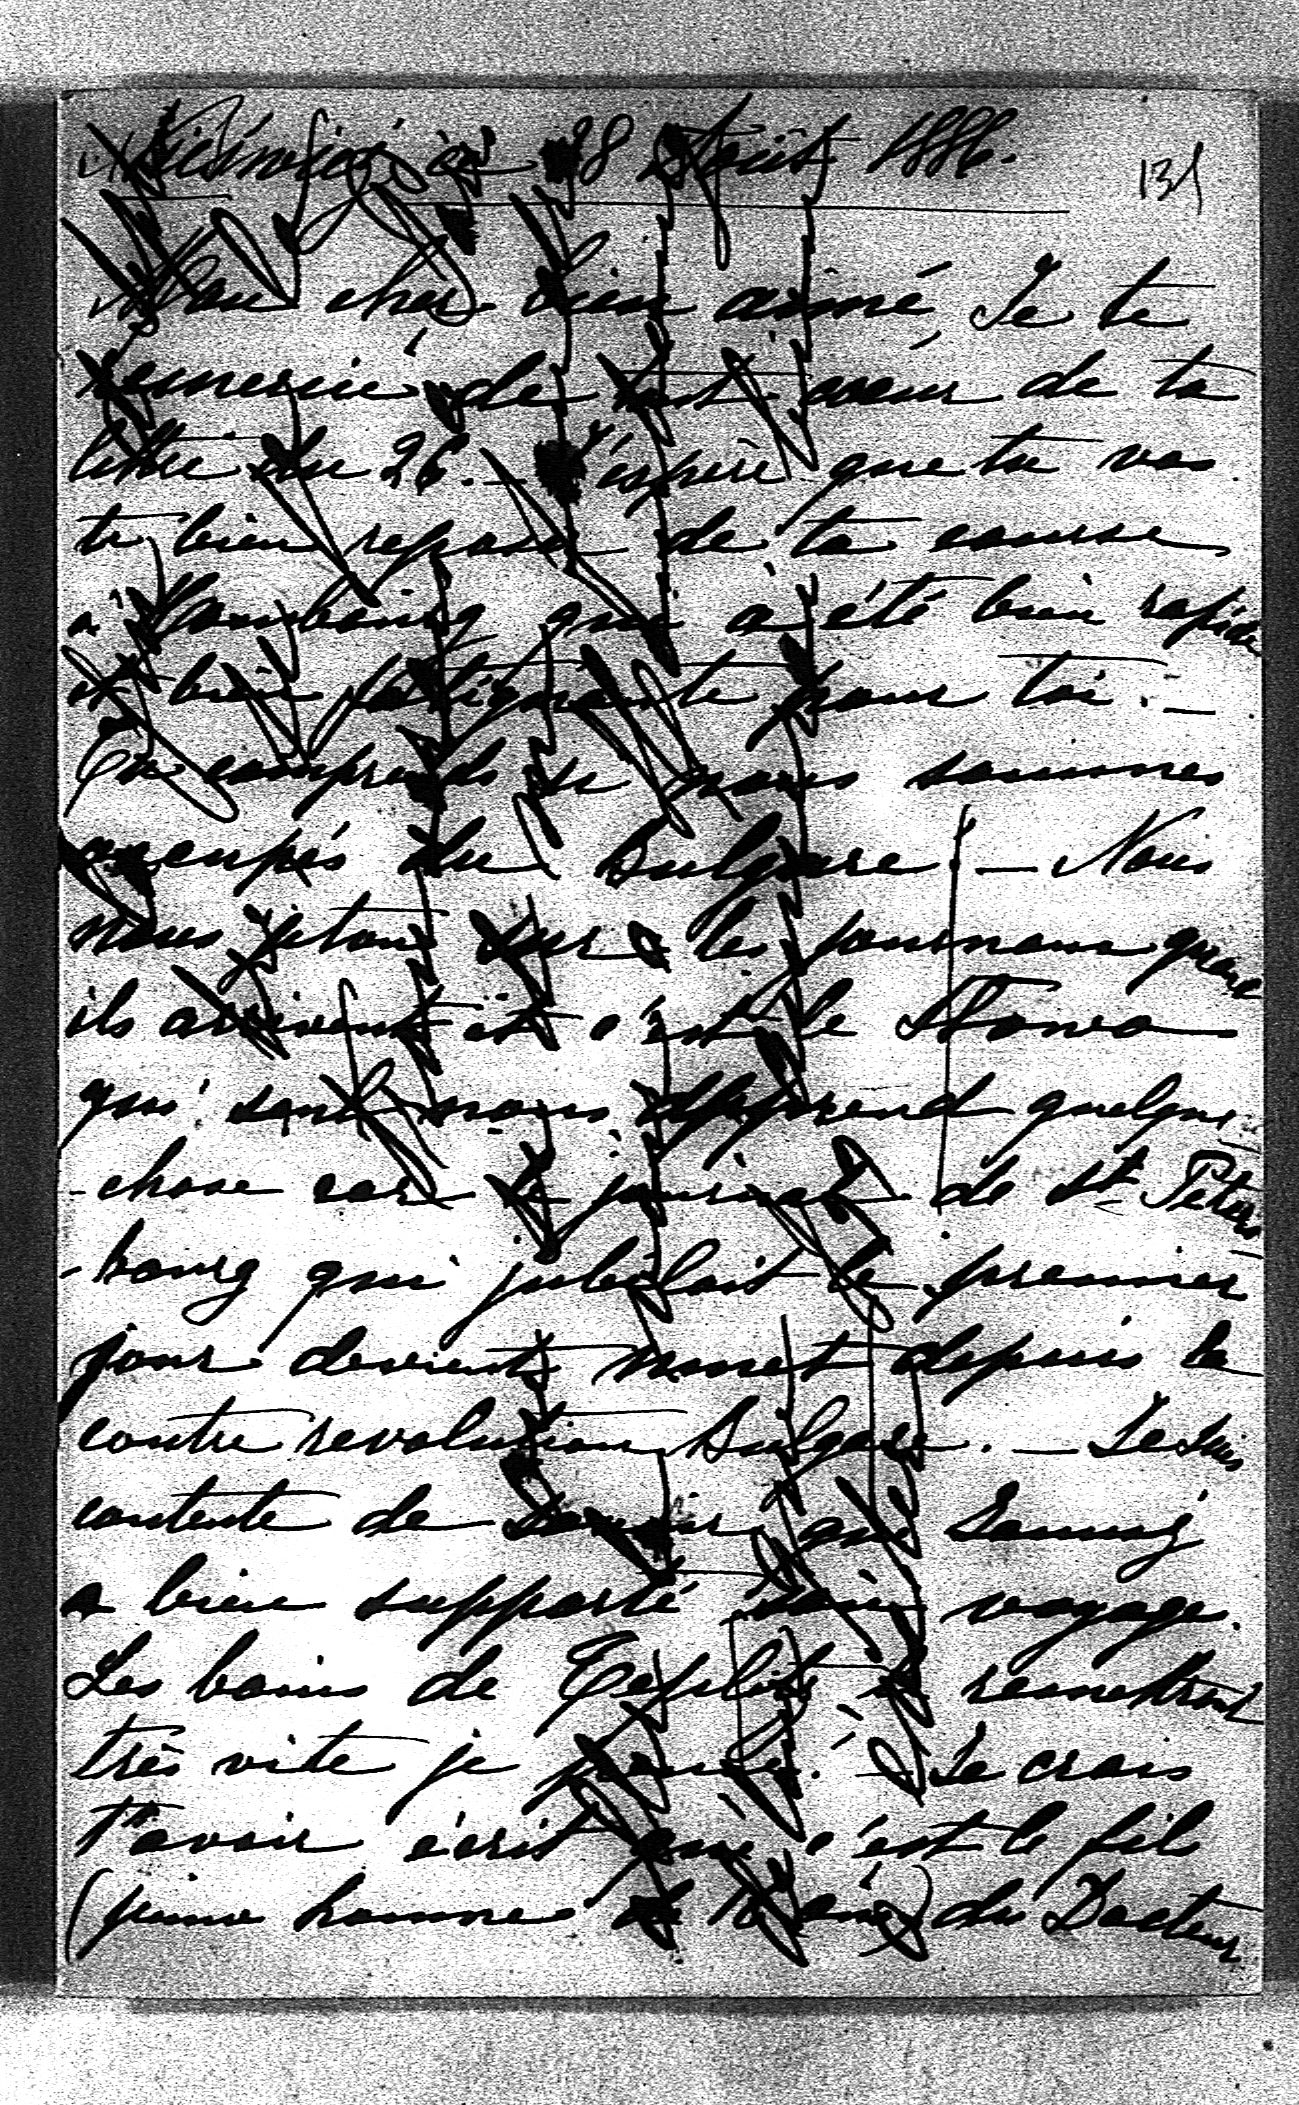 Nieśwież ce 28 Août 1886.
131
Mon cher bien aimé, Je te
remercie de tout cœur de ta
lettre du 26. — J'espère que tu vas
te bien reposer de ta course
à Hambourg qui a été bien rapide
et bien fatiguante pour toi. —
Tu comprends si nous sommes
occupés du Bulgare — Nous
nous jetons sur les journaux quand
ils arrivent et c'est le Slowo
qui seul nous apprend quelque
chose car le journal de St Peters
-bourg qui jubilait le premier
jour devient muet depuis la
contre revolution Bulgare. — Je suis
contente de savoir que
a bien supporté son voyage.
Les bains de Teplitz le remettront
très vite je pense. — Je crois
t'avoir écrit que c'est le fils
(jeune homme de ans) du Docteur